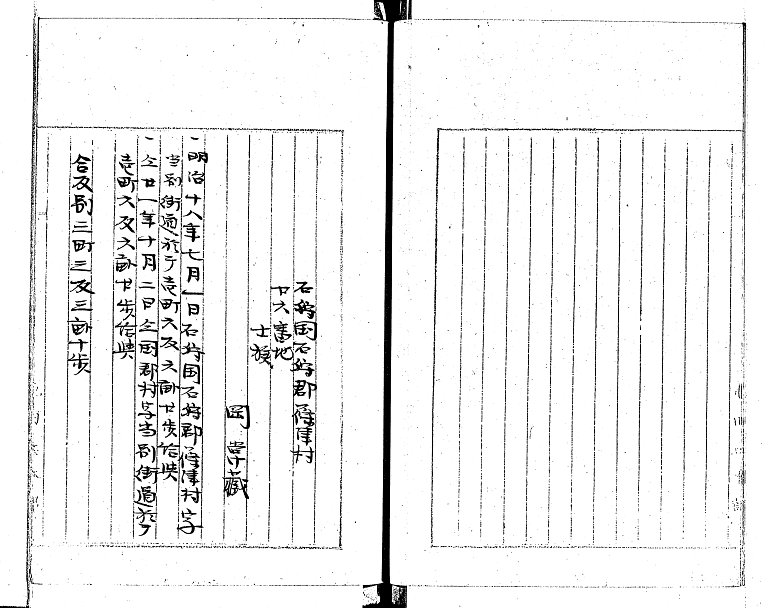 石狩国石狩郡篠津村
廿六番地
士族
岡 常蔵
一 明治十八年七月一日石狩国石狩郡篠津村字
当別街道於テ壱町六反六畝廿歩給与
一 仝廿一年十月二日仝国郡村字当別街道於テ
壱町六反六畝廿歩給与
合反別三町三反三畝十歩